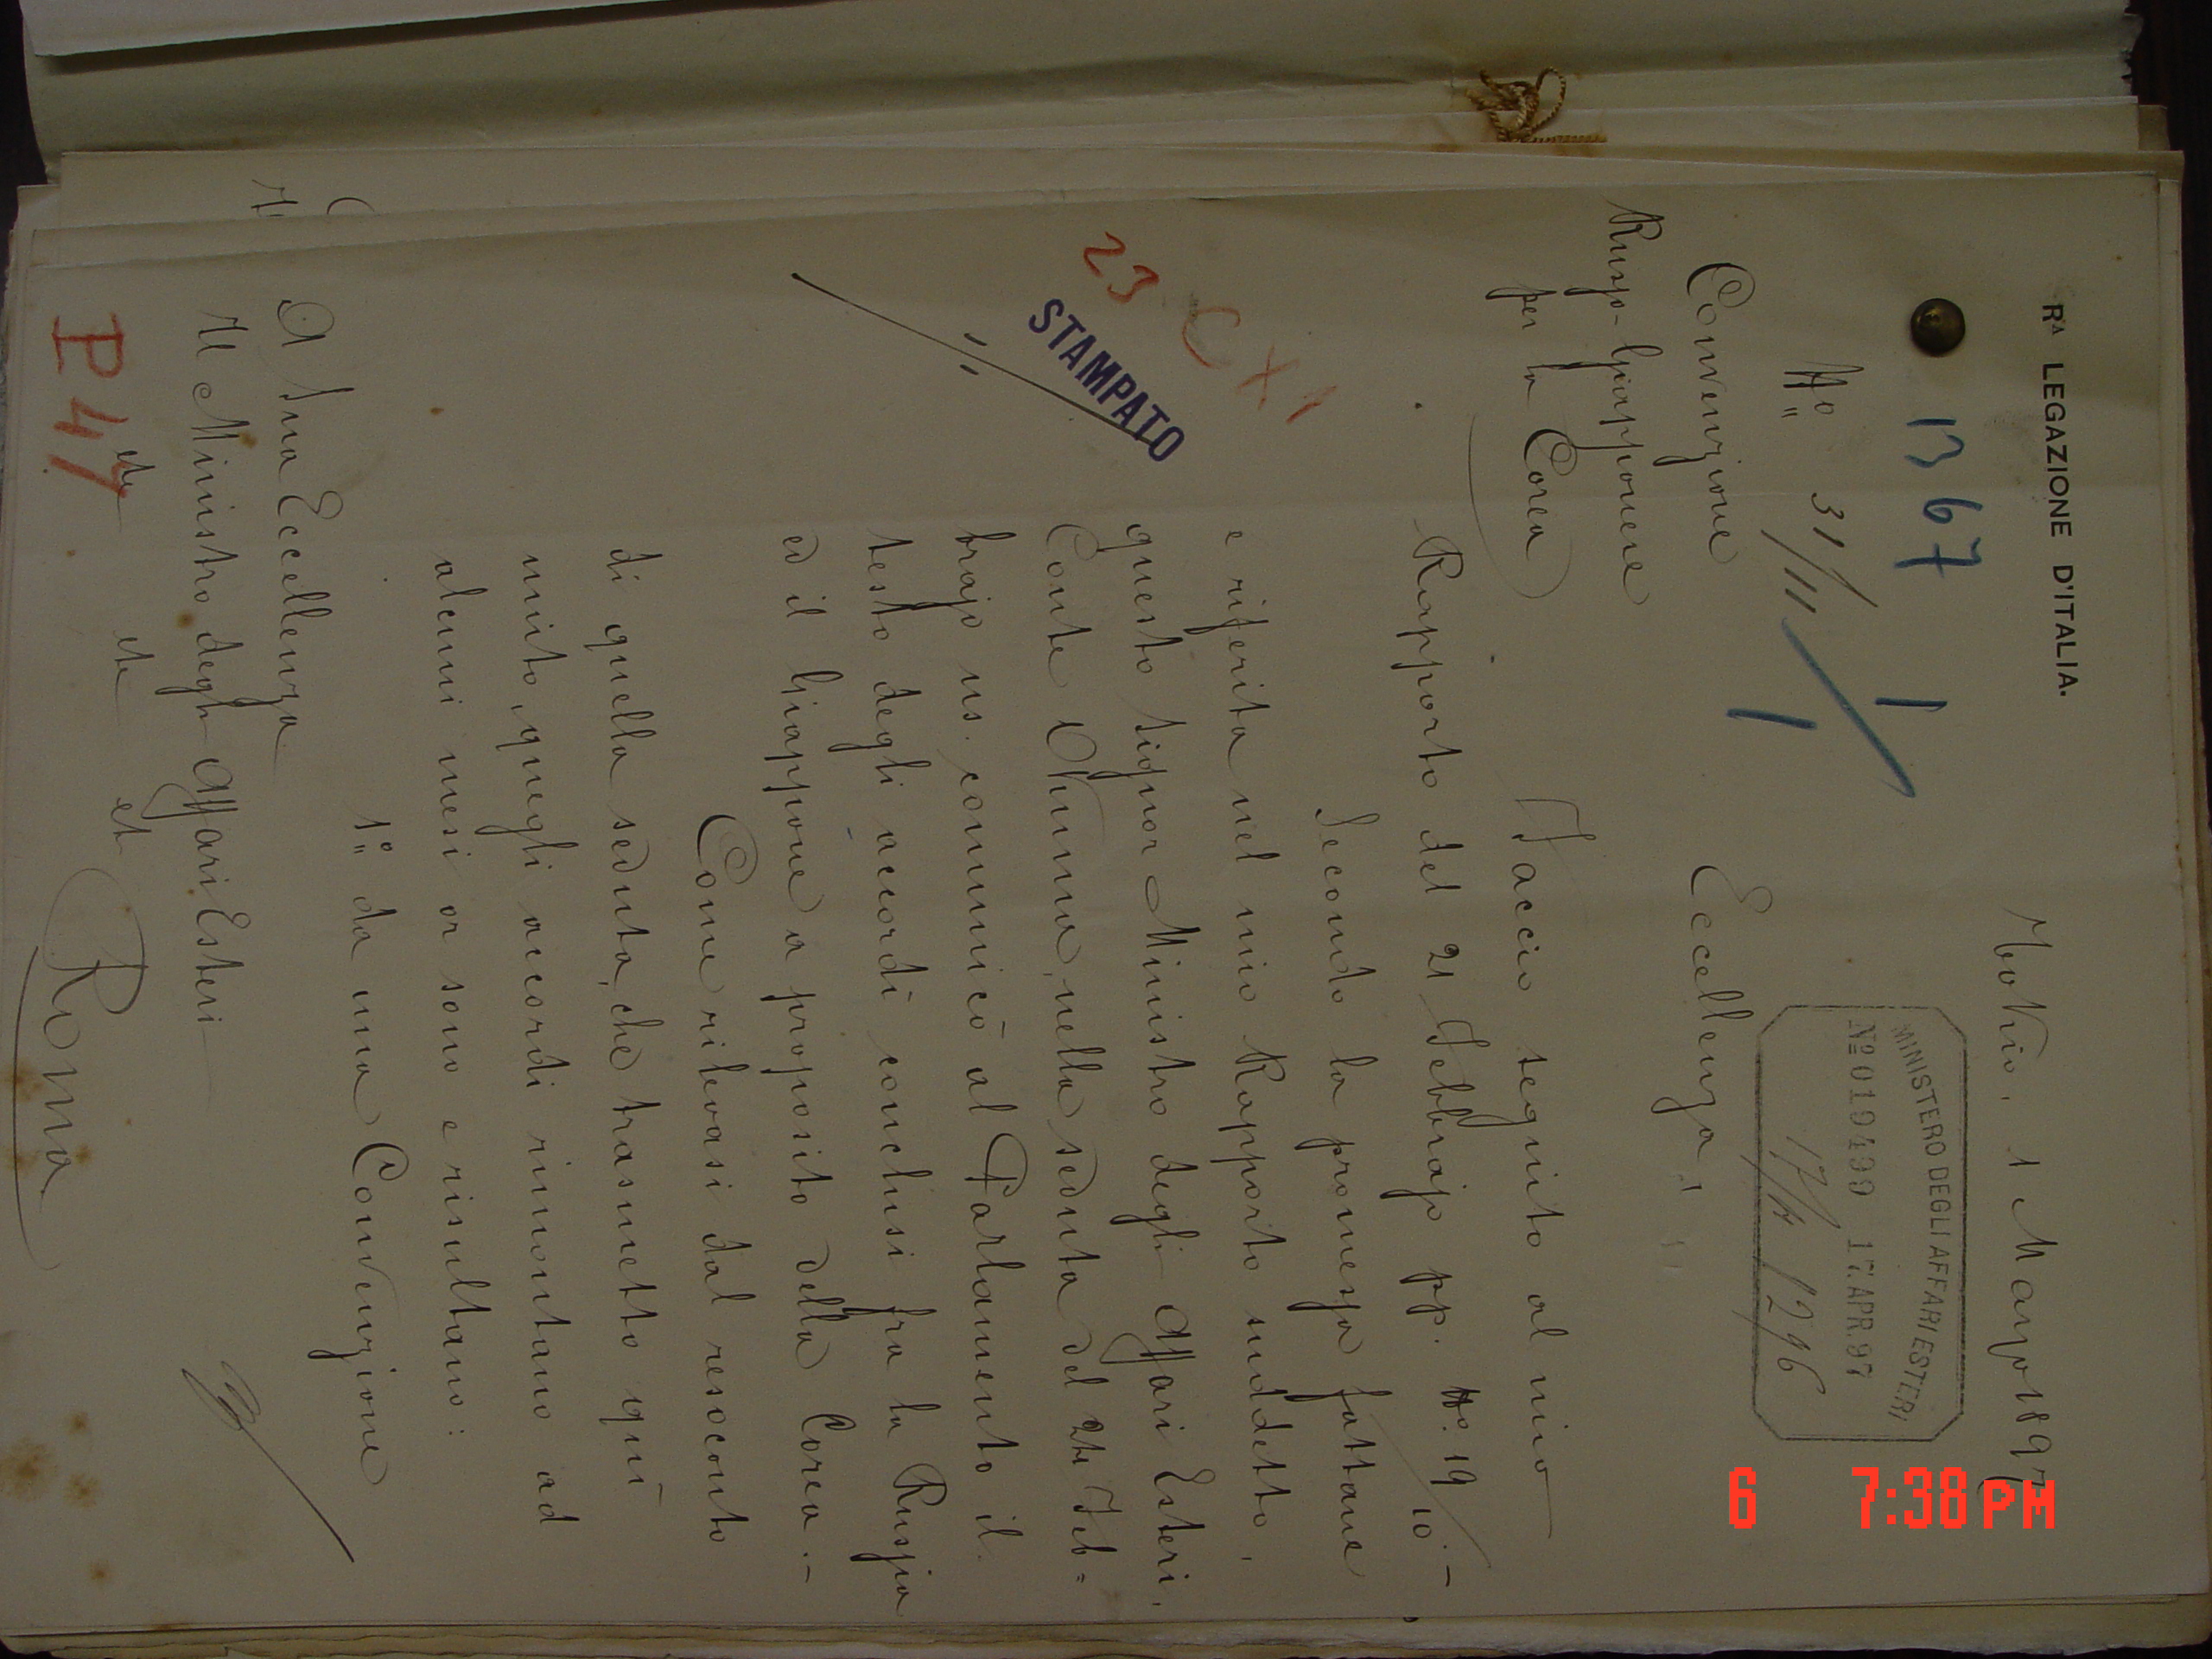 Rᴬ LEGAZIONE D'ITALIA.
Tokio, 1 Marzo 1897
1367
MINISTERO DEGLI AFFARI ESTERI
Nº 019499 17.APR.97
Nº 31/11
Convenzione
Russo-Giapponese
per la Corea
Eccellenza,
Faccio seguito al mio
Rapporto del 21 Febbrajo pp. Nº. 19/10.-
Secondo la promessa fattane
e riferita nel mio Rapporto suddetto,
questo Signor Ministro degli Affari Esteri,
Conte Okuma, nella seduta del 24 Feb=
brajo us. comunicò al Parlamento il
testo degli accordi conclusi fra la Russia
ed il Giappone a proposito della Corea.-
Come rilevasi dal resoconto
di quella seduta, che trasmetto quì
unito, quegli accordi rimontano ad
alcuni mesi or sono e risultano:
1º da una Convenzione
23 CXI
STAMPATO
A Sua Eccellenza
Il Ministro degli Affari Esteri
etc etc etc
Roma
P 47
6 7:38 PM